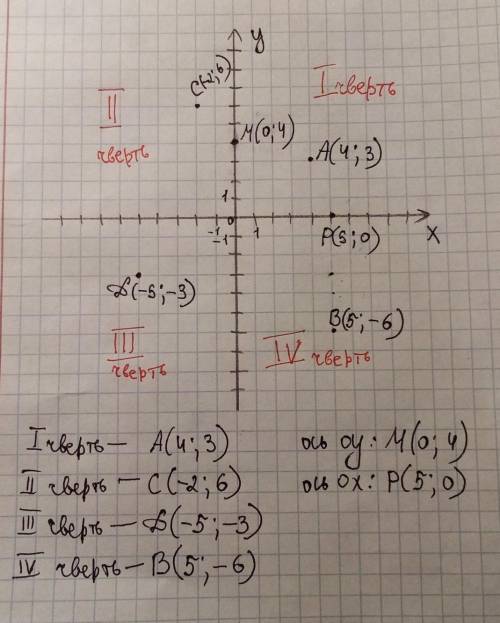 y
C(-2; 6)
I чверть
II
чверть
M(0; 4)
A(4; 3)
1
0
-1
-1
1
P(5; 0)
x
D(-5; -3)
B(5; -6)
III
чверть
IV чверть
I чверть - A(4; 3)
II чверть - C(-2; 6)
III чверть - D(-5; -3)
IV чверть - B(5; -6)
ось oy: M(0; 4)
ось ox: P(5; 0)